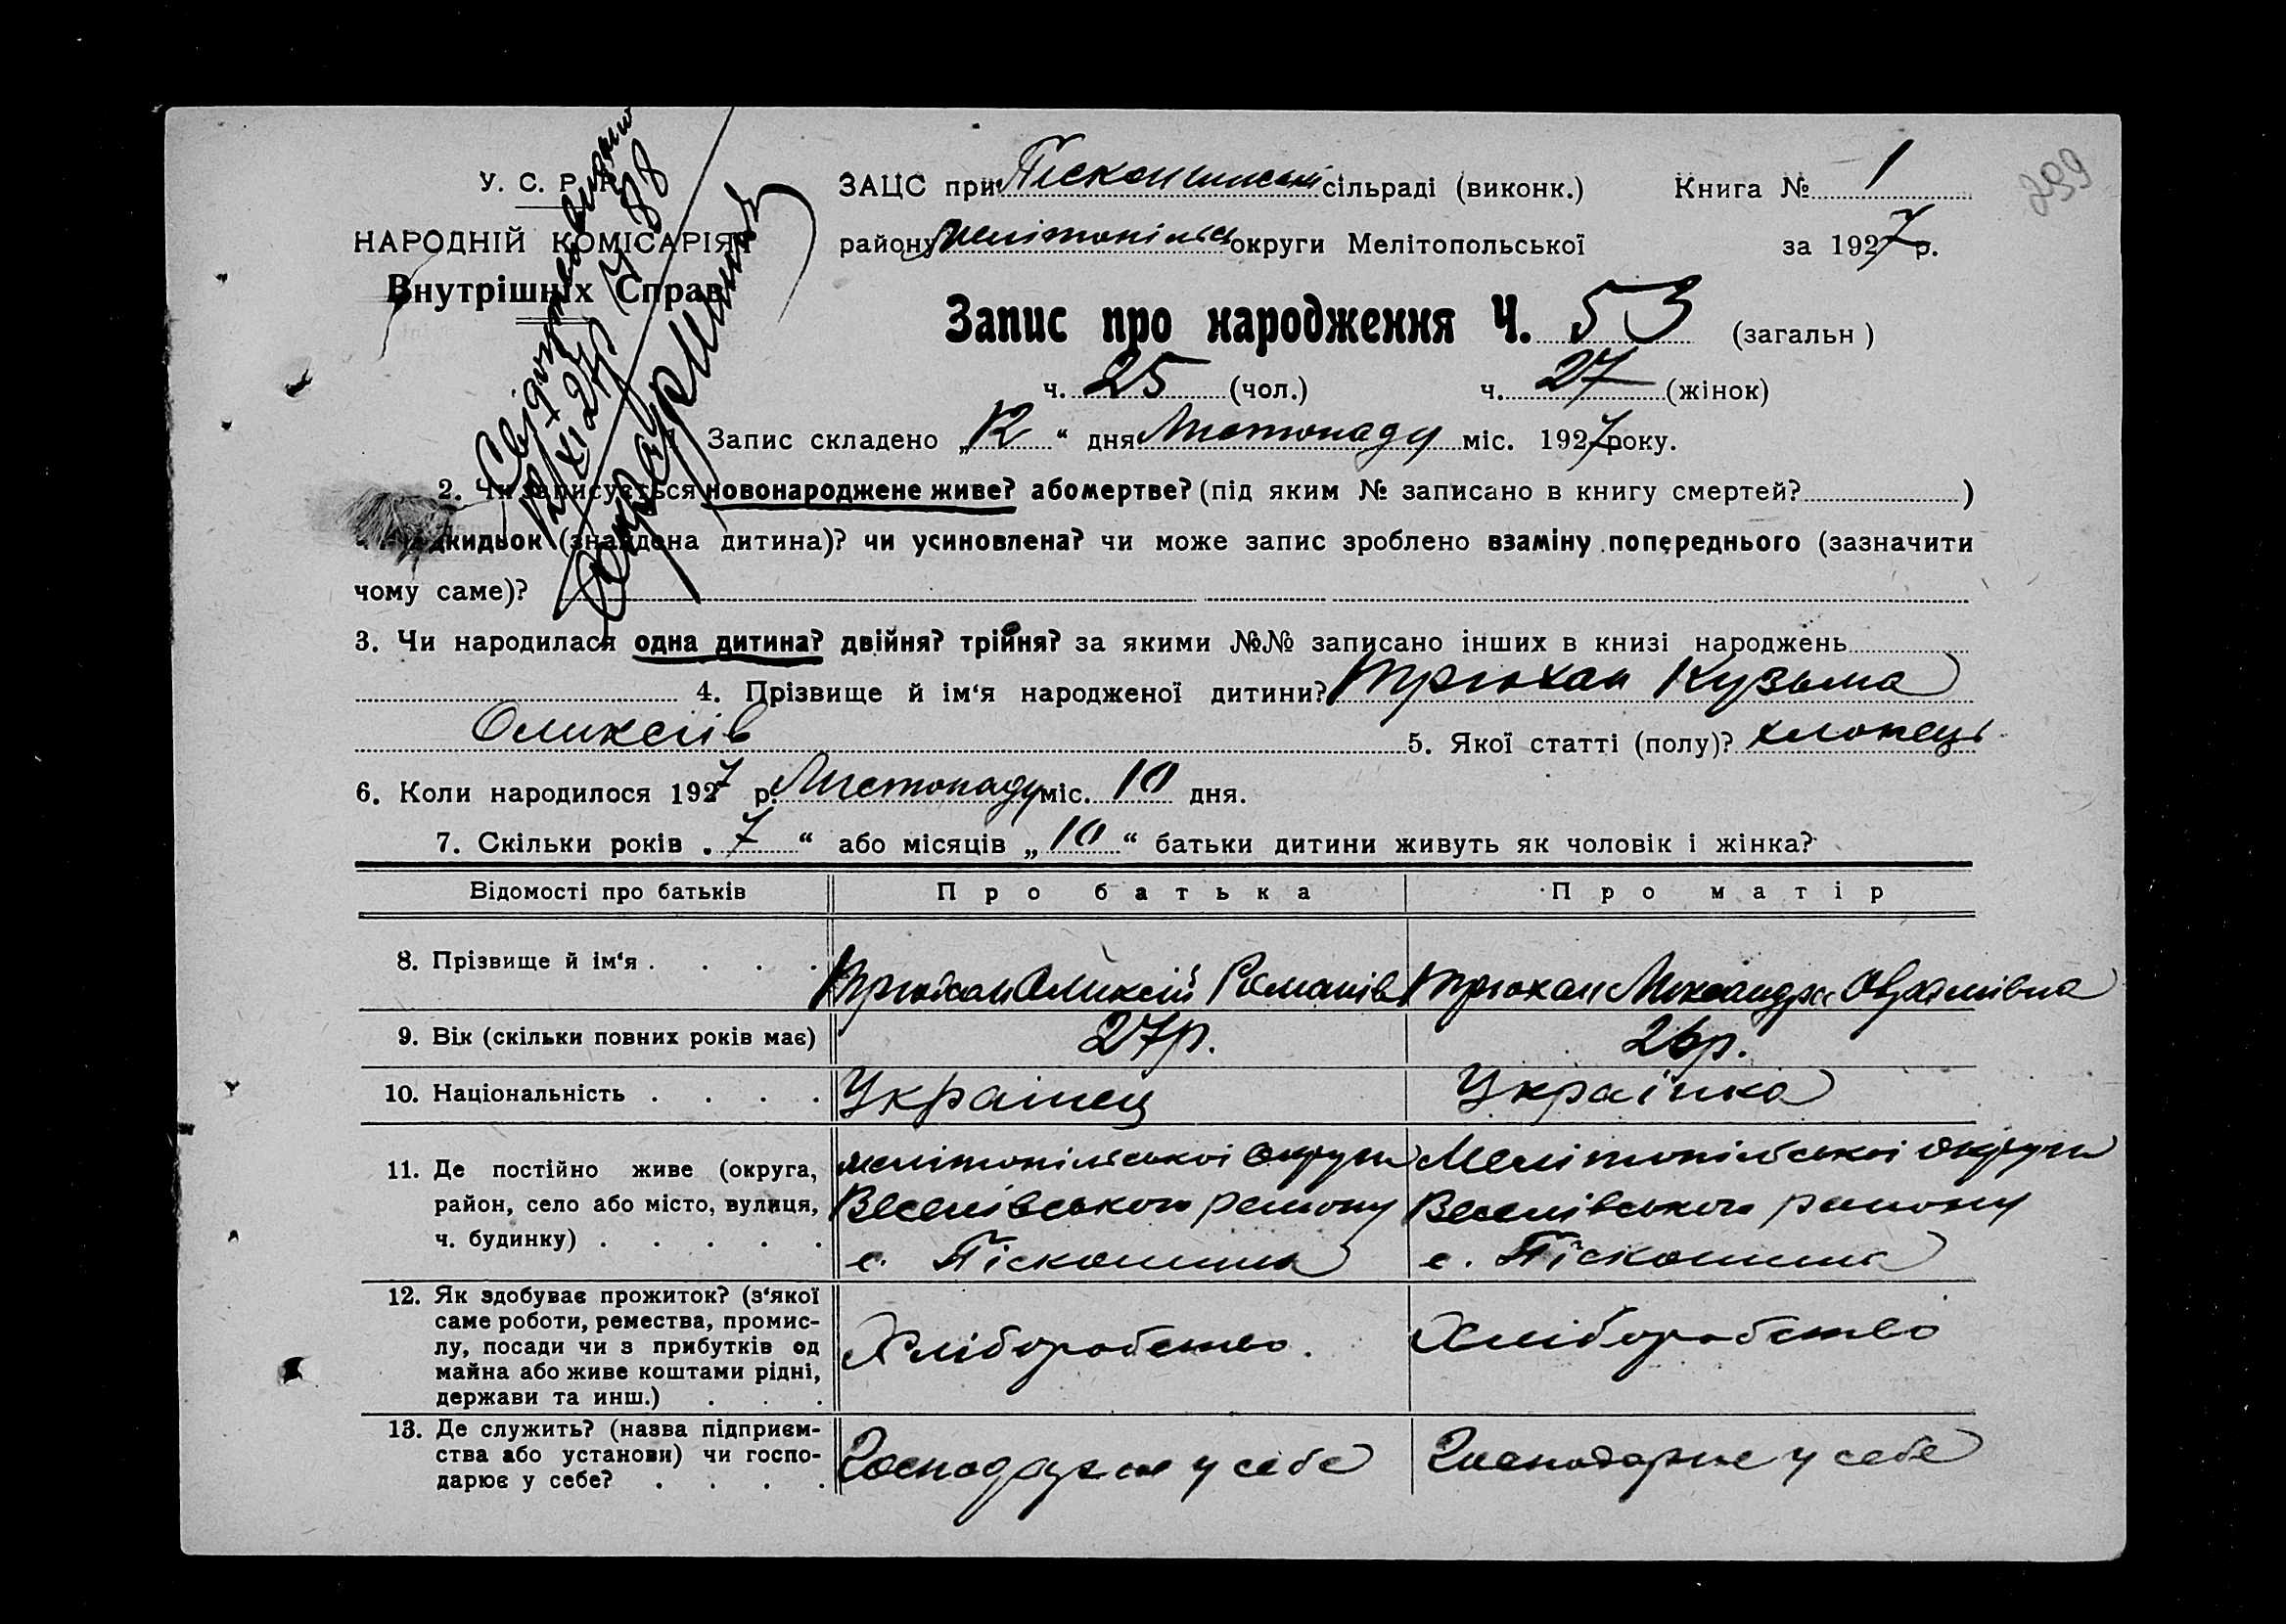 299
У. С. Р. Р.
НАРОДНІЙ КОМІСАРІЯТ
Внутрішніх Справ
Свідоцтво видано
12/XI 27р Ч 88
ЗАЦС при Піскошинській сільраді (виконк.) Книга № 1
району Мелітопільсь округи Мелітопольської за 1927 р.
Запис про народження Ч. 53 (загальн )
ч. 25 (чол.) ч. 27 (жінок)
Запис складено „ 12 “ дня Листопаду міс. 1927 року.
2. Чи записується новонароджене живе? або мертве? (під яким № записано в книгу смертей? )
підкидьок (знайдена дитина)? чи усиновлена? чи може запис зроблено взаміну попереднього (зазначити
чому саме)?
3. Чи народилася одна дитина? двійня? трійня? за якими №№ записано інших в книзі народжень
4. Прізвище й ім‘я народженої дитини? Трюхан Кузьма
Оликсіїв 5. Якої статті (полу)? хлопець
6. Коли народилося 1927 р. Листопаду міс. 10 дня.
7. Скільки років „ 7 “ або місяців „ 10 “ батьки дитини живуть як чоловік і жінка?
Відомості про батьків Про батька Про матір
8. Прізвище й ім‘я . . . . Трюхан Оликсій Романів Трюхан Олександра Оврамівна
9. Вік (скільки повних років має) 27р. 26р.
10. Національність . . . . Українец Українка
11. Де постійно живе (округа, район, село або місто, вулиця, ч. будинку) . . . . .
мелітопільської округи
Веселівського району
с. Піскошина
Мелітопільської округи
Веселівського району
с. Піскошина
12. Як здобуває прожиток? (з‘якої саме роботи, ремества, промис-
лу, посади чи з прибутків од
майна або живе коштами рідні,
держави та инш.) . . .
Хліборобство. Хліборобство
13. Де служить? (назва підприєм-
ства або установи) чи госпо-
дарює у себе? . . . .
Господарює у себе Господарює у себе